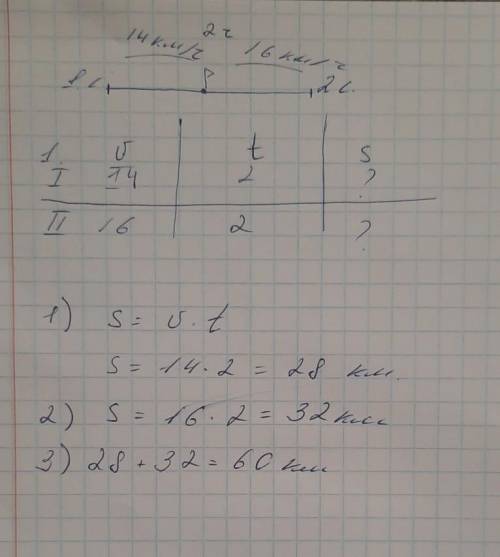 2ч
14км/ч 16км/ч
1с. 2с.
1. υ t s
I 14 2 ?
II 16 2 ?
1) s = υ · t
s = 14 · 2 = 28 км.
2) s = 16 · 2 = 32км
3) 28 + 32 = 60 км